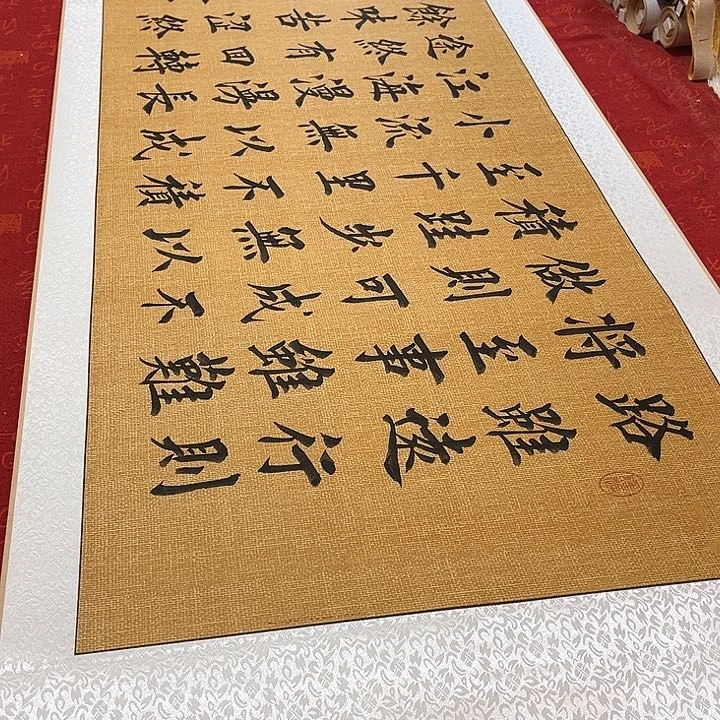 路雖遠行則
將至事雖難
做則可成不
積跬步無以
至千里不積
小流無以成
江海漫漫長
途終有回轉
餘味苦澀終